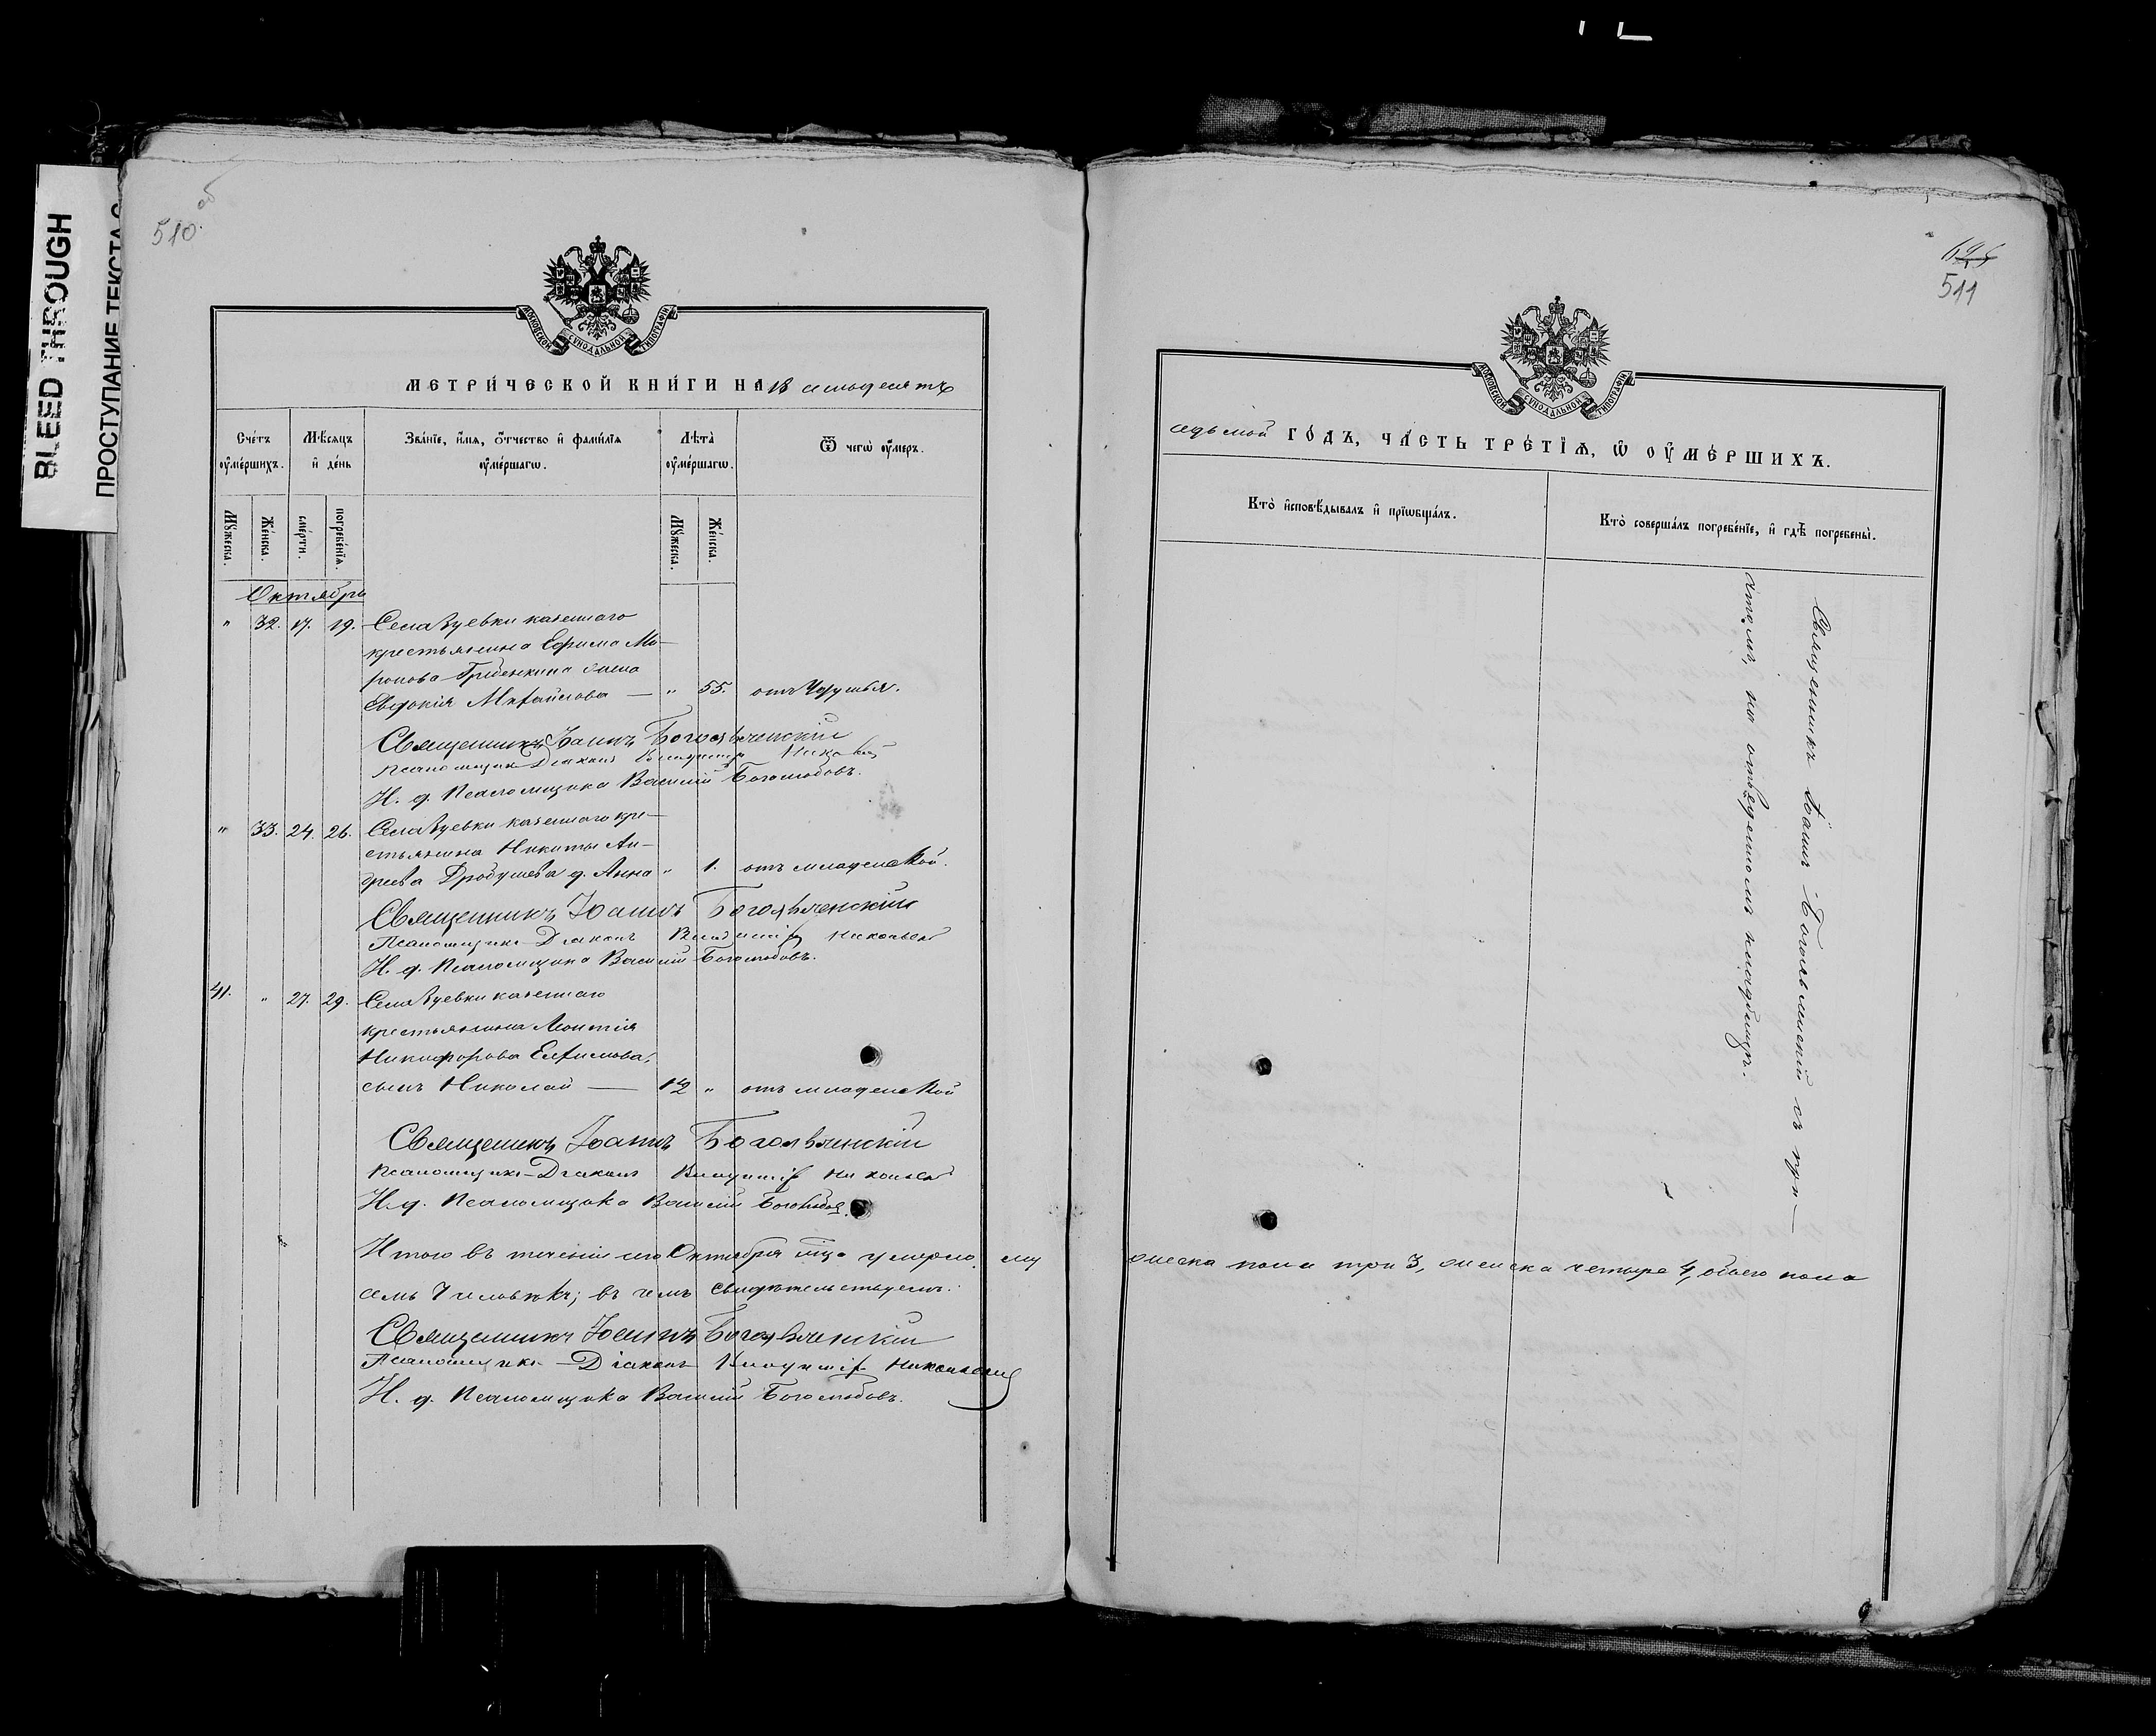 BLEED THROUGH
ПРОСТУПАНИЕ ТЕКСТА С
510 об
МОСКОВСКОЙ СУНОДАЛЬНОЙ ТИПОГРАФІИ
МЕТРИ́ЧЕСКОЙ КНИ́ГИ НА 18 семьдесятъ
Сче́тъ оумершихъ.
Мѣсяцъ и де́нь
Зва́ніе, и́мя, о́тчество и фами́лія оуме́ршагѡ.
Лѣта̀ оуме́ршагѡ.
Ѿ чегѡ̀ оу́меръ.
Мꙋжеска.
Же́нска.
сме́рти.
погребе́нія.
Мꙋжеска.
Же́нска.
Октябрь
" 32. 17. 19. Села Зуевки казеннаго
крестьянина Ефима Ми-
ронова Гребенкина жена
Евдокія Михайлова — " 55. отъ Чахушья.
Священникъ Іоаннъ Богоявленскій
Псаломщикъ Діаконъ Владимір Никольскій
И. д. Псаломщика Василій Боголюбовъ.
" 33. 24. 26. Села Зуевки казеннаго кре-
стьянина Никиты Ан-
дреева Дробушева д. Анна " 1. отъ младенской.
Священникъ Іоаннъ Богоявленскій
Псаломщикъ-Діаконъ Владимір Никольскій
И. д. Псаломщика Василій Боголюбовъ.
41. " 27. 29. Села Зуевки казеннаго
крестьянина Леонтія
Никифорова Елхимова,
сынъ Николай — 1/2 " отъ младенской
Священникъ Іоаннъ Богоявленскій
Псаломщикъ-Діаконъ Владимір Никольскій
И. д. Псаломщика Василій Боголюбов.
Итого въ теченіи сего Октября мца умерло му
семь Человѣкъ; въ чемъ свидѣтельствуемъ:
Священникъ Іоаннъ Богоявленскій
Псаломщикъ-Діаконъ Владимір Никольскій
И. д. Псаломщика Василій Боголюбовъ.
511
МОСКОВСКОЙ СУНОДАЛЬНОЙ ТИПОГРАФІИ
седьмой ГО́ДЪ, ЧА́СТЬ ТРЕ́ТІЯ, Ѡ ОУМЕ́РШИХЪ.
Кто̀ исповѣ́дывалъ и пріѡбща́лъ.
Кто̀ соверша́лъ погребе́ніе, и гдѣ̀ погребены̀.
Священникъ Іоаннъ Богоявленскій съ при-
чтомъ, на отведенномъ кладбищѣ.
жеска пола три 3, женска четыре 4, обоего пола